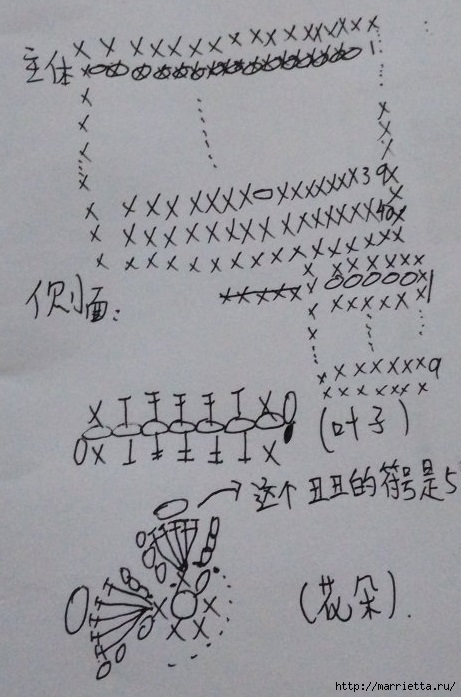 主体
1
39
40
侧面：
1
9
(叶子)
这个丑丑的符号是5
(花朵).
http://marrietta.ru/